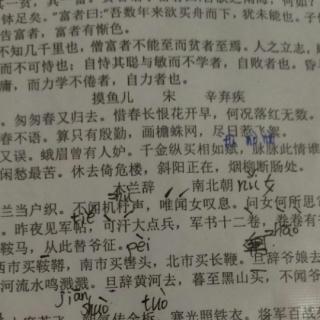 一贫，其一富。
钵足矣。"富者曰："吾数年来欲买舟而下，犹未能也。子何
富者，富者有惭色。
不知几千里也，僧富者不能至而贫者至焉。人之立志，
而不可恃也；自恃其聪与敏而不学者，自败者也。昏
庸，而力学不倦者，自力者也。
摸鱼儿 宋 辛弃疾
匆匆春又归去。惜春长恨花开早，何况落红无数。
春不语。算只有殷勤，画檐蛛网，尽日惹飞絮。
又误。蛾眉曾有人妒。千金纵买相如赋，脉脉此情谁
闲愁最苦。休去倚危楼，斜阳正在，烟柳断肠处。
木兰辞 南北朝
兰当户织。不闻机杼声，唯闻女叹息。问女何所思
昨夜见军帖，可汗大点兵，军书十二卷，卷卷有
鞍马，从此替爷征。
pèi
西市买鞍鞯，南市买辔头，北市买长鞭。旦辞爷娘去
河流水鸣溅溅。旦辞黄河去，暮至黑山头，不闻爷
jiān
shuò tuò
朔气传金柝，寒光照铁衣。将军百战